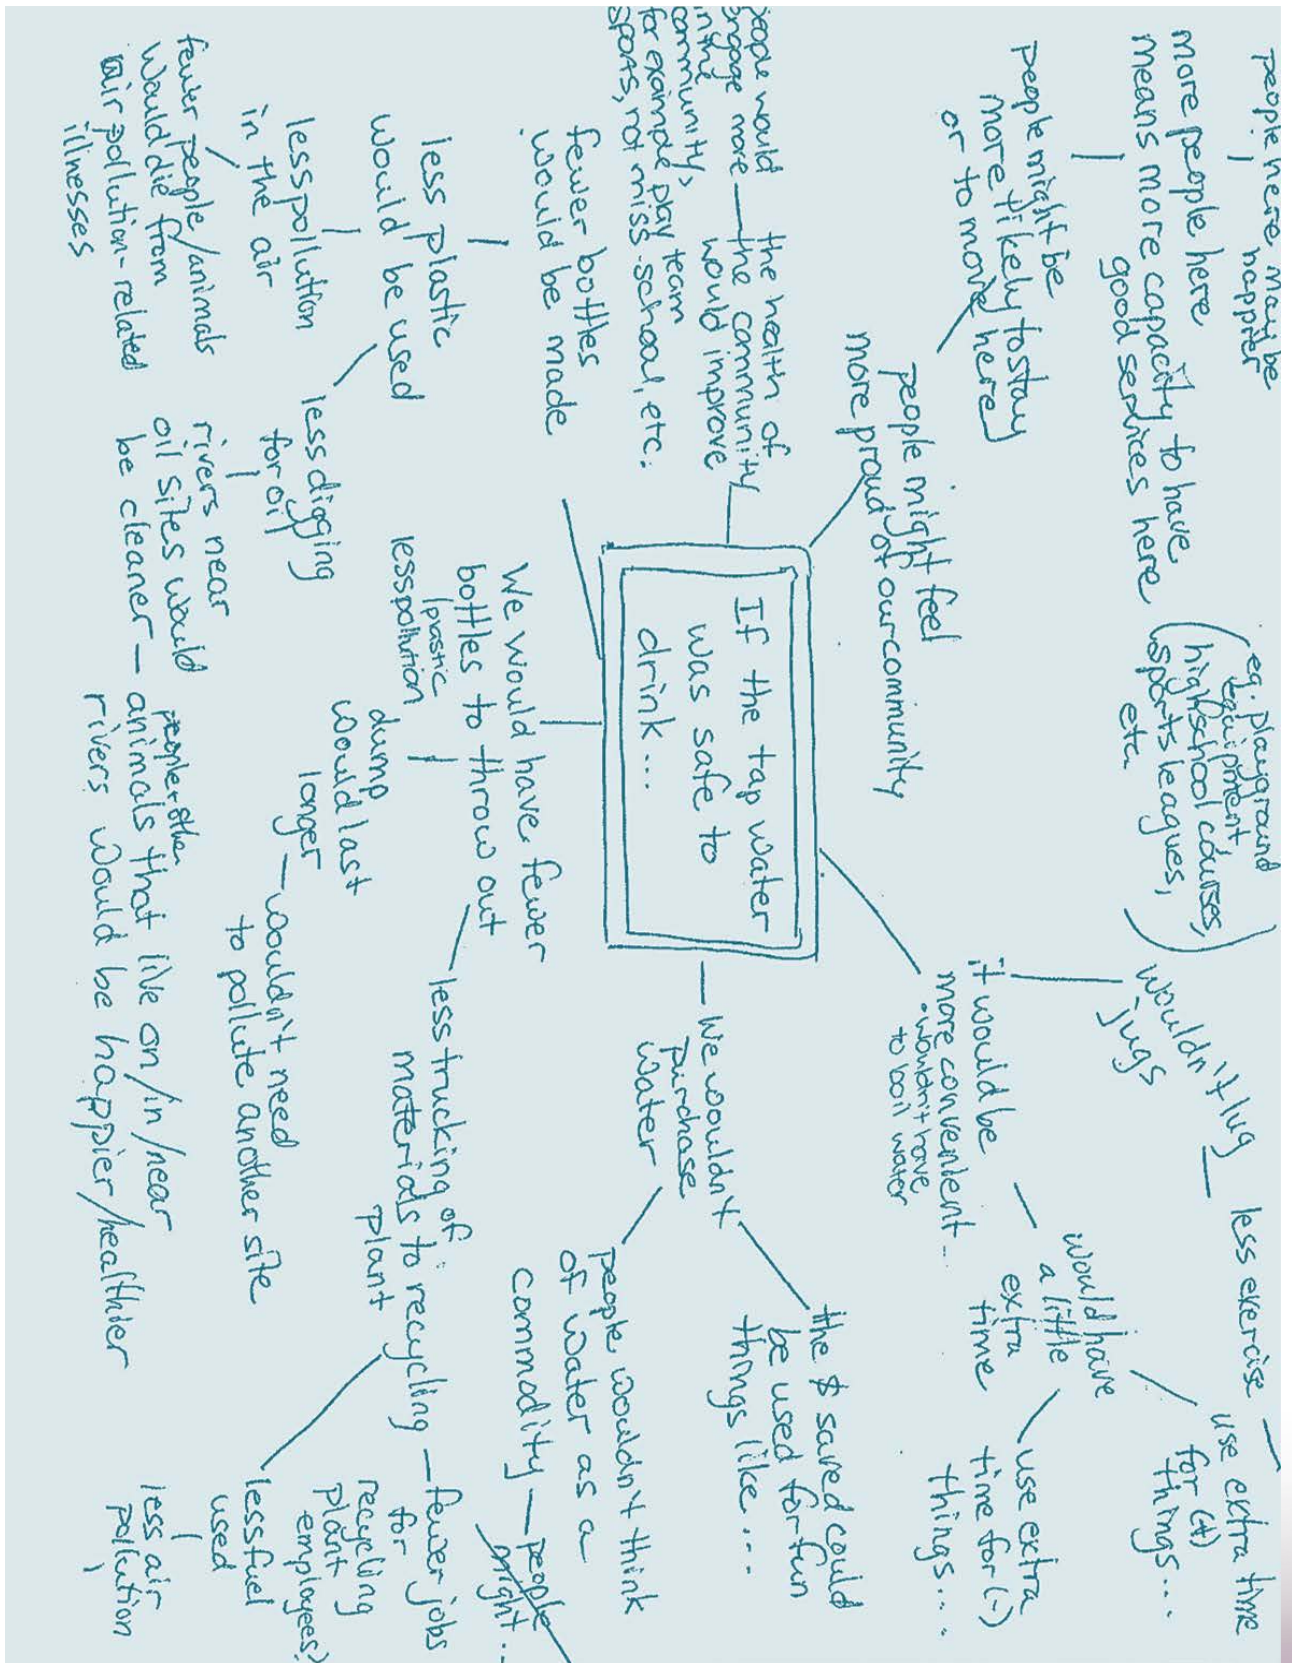 If the tap water
was safe to
drink...
people might feel
more proud of our community
people might be
more likely to stay
or to move here
more people here
means more capacity to have
good services here
eg. playground
equipment
highschool courses,
sports leagues,
etc.
people here may be
happier
the health of
the community
would improve
people would
engage more
in the
community,
for example play team
sports, not miss school, etc.
fewer bottles
would be made
less plastic
would be used
less pollution
in the air
fewer people/animals
would die from
air pollution-related
illnesses
less digging
for oil
rivers near
oil sites would
be cleaner — people + other
animals that live on/in/near
rivers would be happier/healthier
We would have fewer
bottles to throw out
less plastic
pollution
dump
would last
longer
wouldn't need
to pollute another site
less trucking of
materials to recycling
plant
fewer jobs
for
recycling
plant
employees?
less fuel
used
less air
pollution
We wouldn't
purchase
water
people wouldn't think
of water as a
commodity — people
might...
the $ saved could
be used for fun
things like...
it would be
more convenient...
• wouldn't have
to boil water
wouldn't lug
jugs
less exercise
use extra time
for (+)
things...
would have
a little
extra
time
use extra
time for (-)
things...